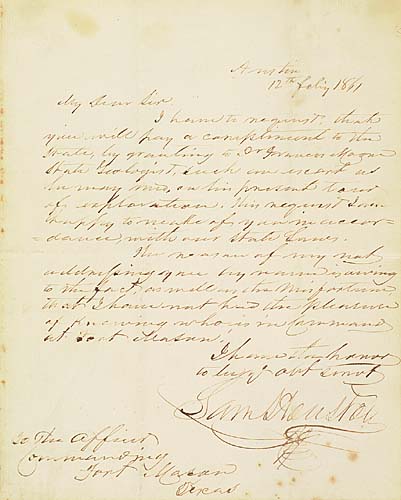 Austin
12th feby 1861
My Dear Sir.
I have to request that
you will pay a compliment to the
State, by granting to Dr Francis Moore
State Geologist, such an escort as
he may need, on his present tour
of exploration. This request I am
happy to make of you in accor-
=dance, with our State Laws.
The reason of my not
addressing you by name is owing
to the fact, as well as the misfortune
that I have not had the pleasure
of knowing who is in Command
at Fort Mason.
I have the honor
to be yr obt Servt
Sam Houston
To The Officer
Commanding
Fort Mason
Texas